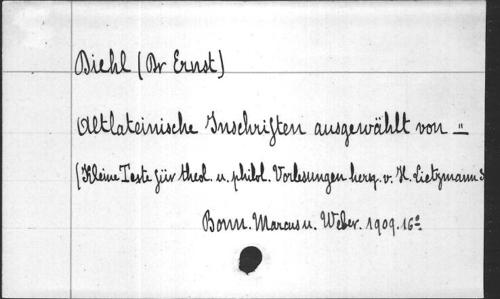 Diehl (Dr Ernst)
Altlateinische Inschriften ausgewählt von "
(Kleine Texte für theol. u. philol. Vorlesungen herg. v. H. Lietzmann 3
Bonn. Marcus u. Weber. 1909. 16°